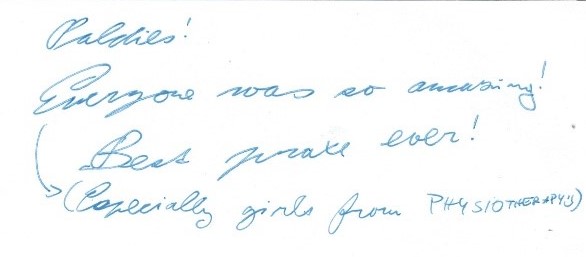 Paldies!
Everyone was so amazing!
Best praxe ever!
(Especially girls from PHYSIOTHERAPY'S)